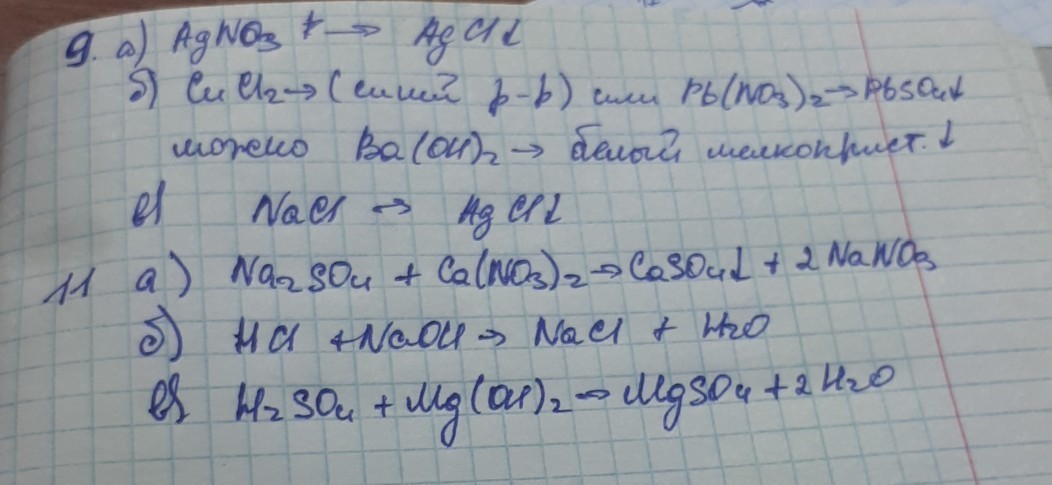 9. а) AgNO3 + → AgCl↓
б) CuCl2 → (синий р-р) или Pb(NO3)2 → PbSO4↓
можно Ba(OH)2 → белый мелкокрист. ↓
в) NaCl → AgCl↓
11 а) Na2SO4 + Ca(NO3)2 → CaSO4↓ + 2NaNO3
б) HCl + NaOH → NaCl + H2O
в) H2SO4 + Mg(OH)2 → MgSO4 + 2H2O